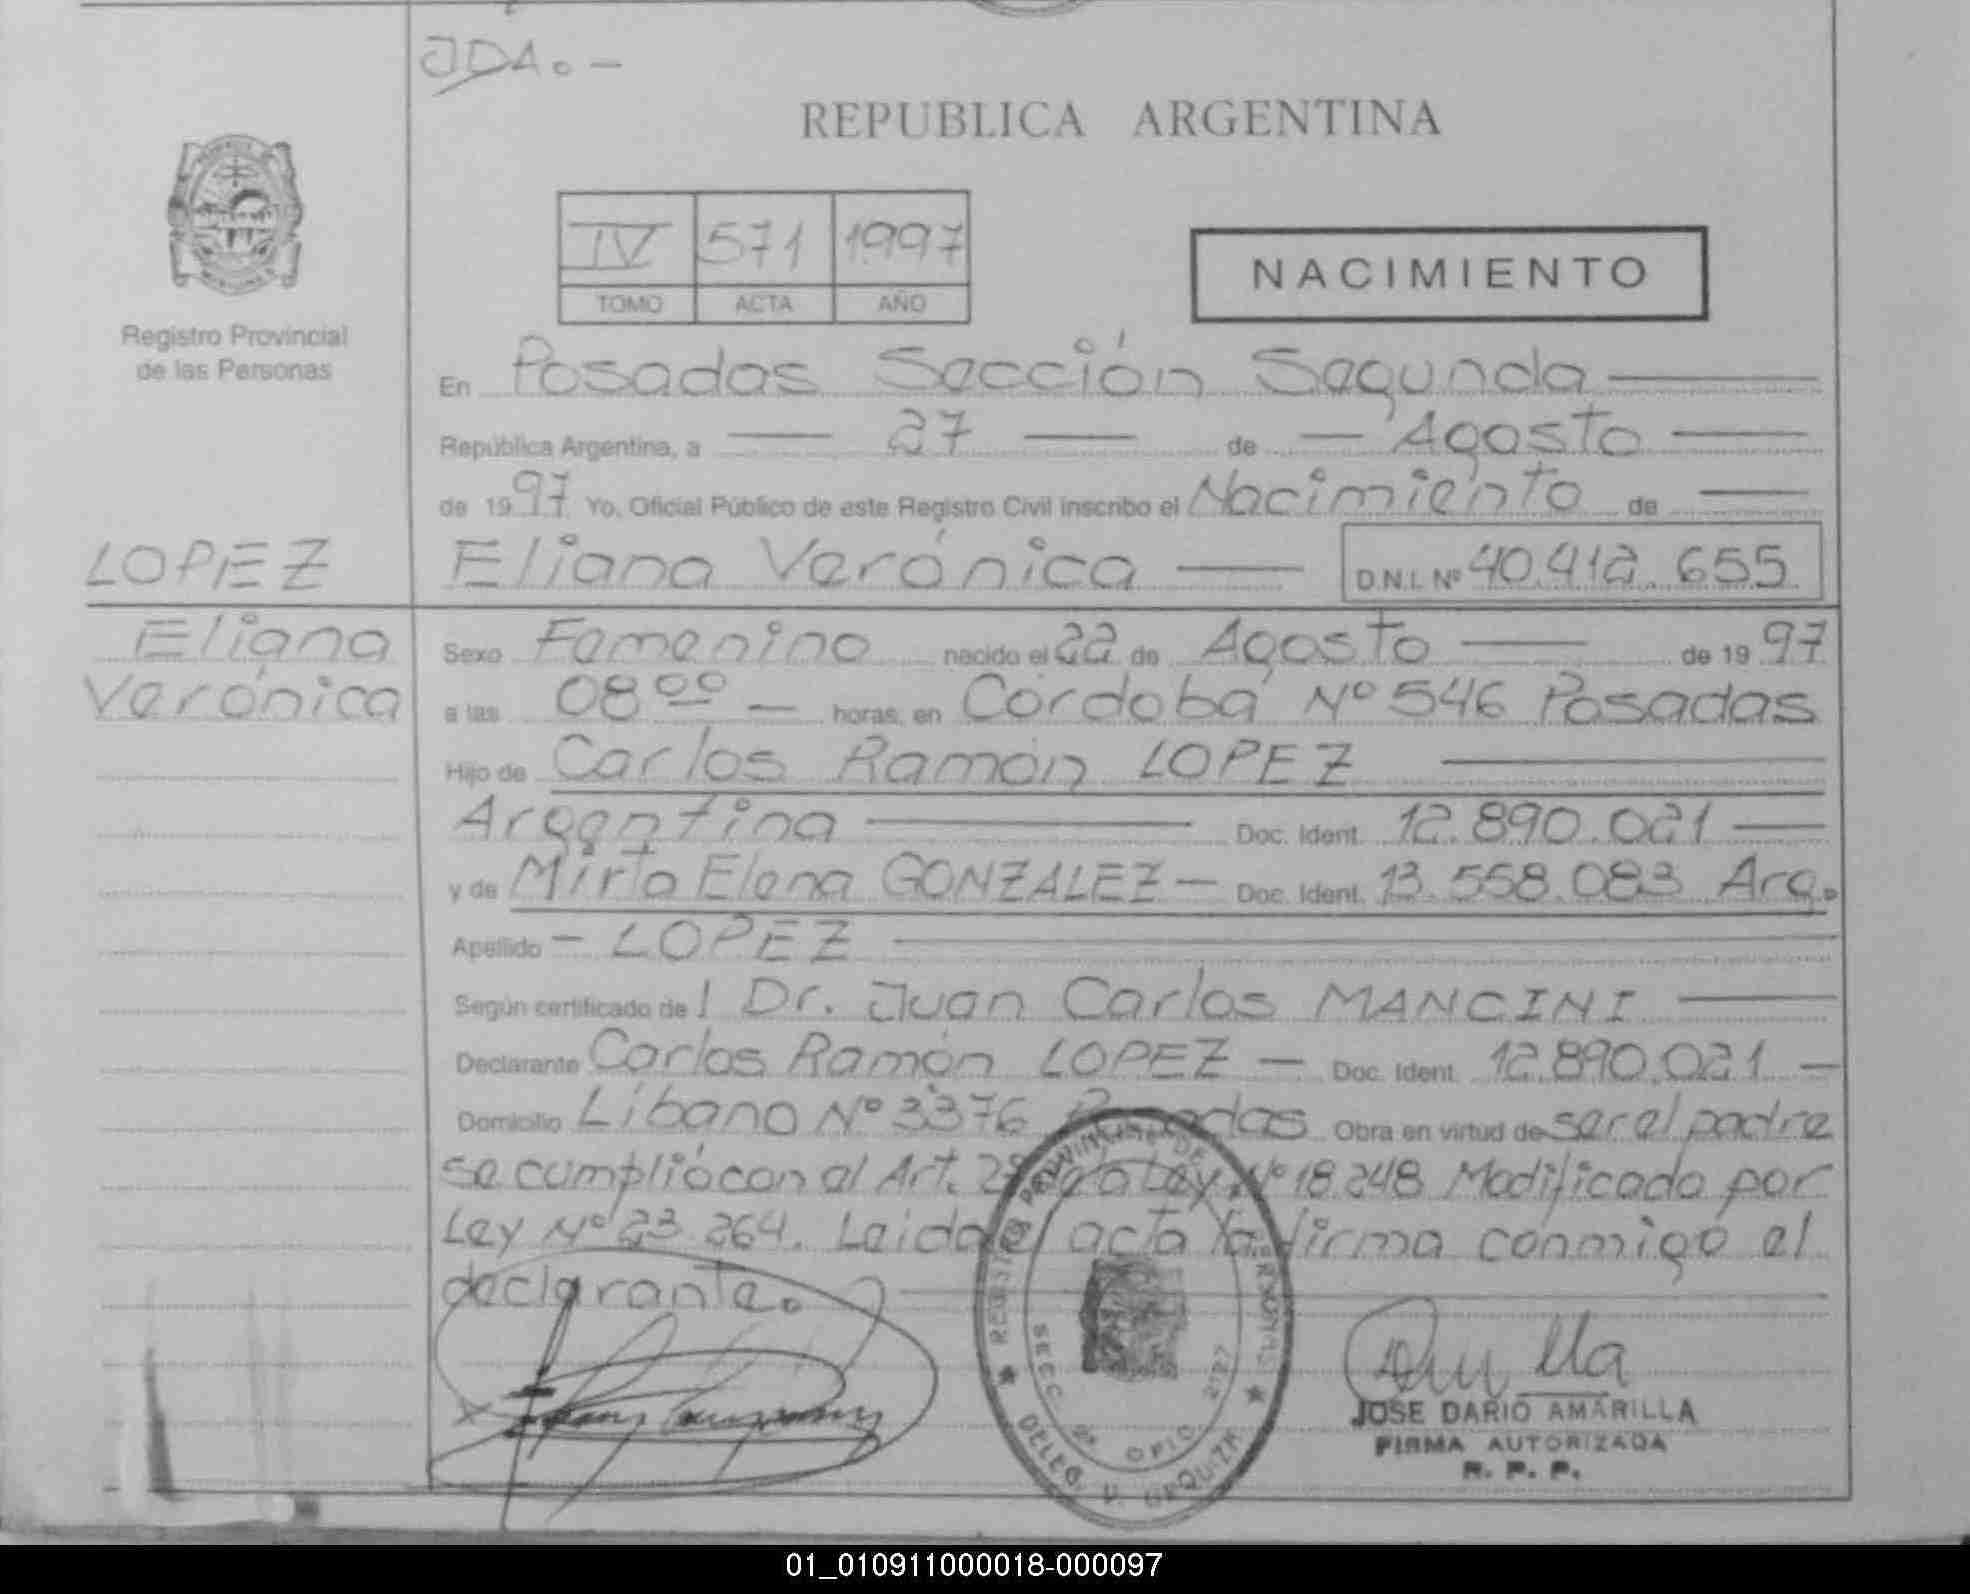 JDA. -
REPUBLICA ARGENTINA
IV 571 1997
TOMO ACTA AÑO
NACIMIENTO
Registro Provincial
de las Personas
En Posadas Sección Segunda
República Argentina, a 27 de Agosto
de 1997 Yo, Oficial Público de este Registro Civil inscribo el Nacimiento de
LOPEZ
Eliana Verónica D.N.I. Nº 40.412.655
Eliana
Verónica
Sexo Femenino nacido el 22 de Agosto de 1997
a las 08 ºº horas, en Córdoba Nº 546 Posadas
Hijo de Carlos Ramón LOPEZ
Argentina Doc. Ident. 12.890.021
y de Mirta Elena GONZALEZ - Doc. Ident. 13.558.083 Arg.
Apellido - LOPEZ
Según certificado de l Dr. Juan Carlos MANCINI
Declarante Carlos Ramón LOPEZ - Doc. Ident. 12.890.021 -
Domicilio Líbano Nº 3376 Posadas Obra en virtud de ser el padre
se cumplió con el Art. Ley Nº 18.248 Modificado por
Ley Nº 23.264. Leida el acta la firma conmigo el
declarante.
REGISTRO PROVINCIAL DE PERSONAS
SECC. 2ª DPTO.
DELEG. V. URQUIZA
JOSE DARIO AMARILLA
FIRMA AUTORIZADA
R. P. P.
01_010911000018-000097